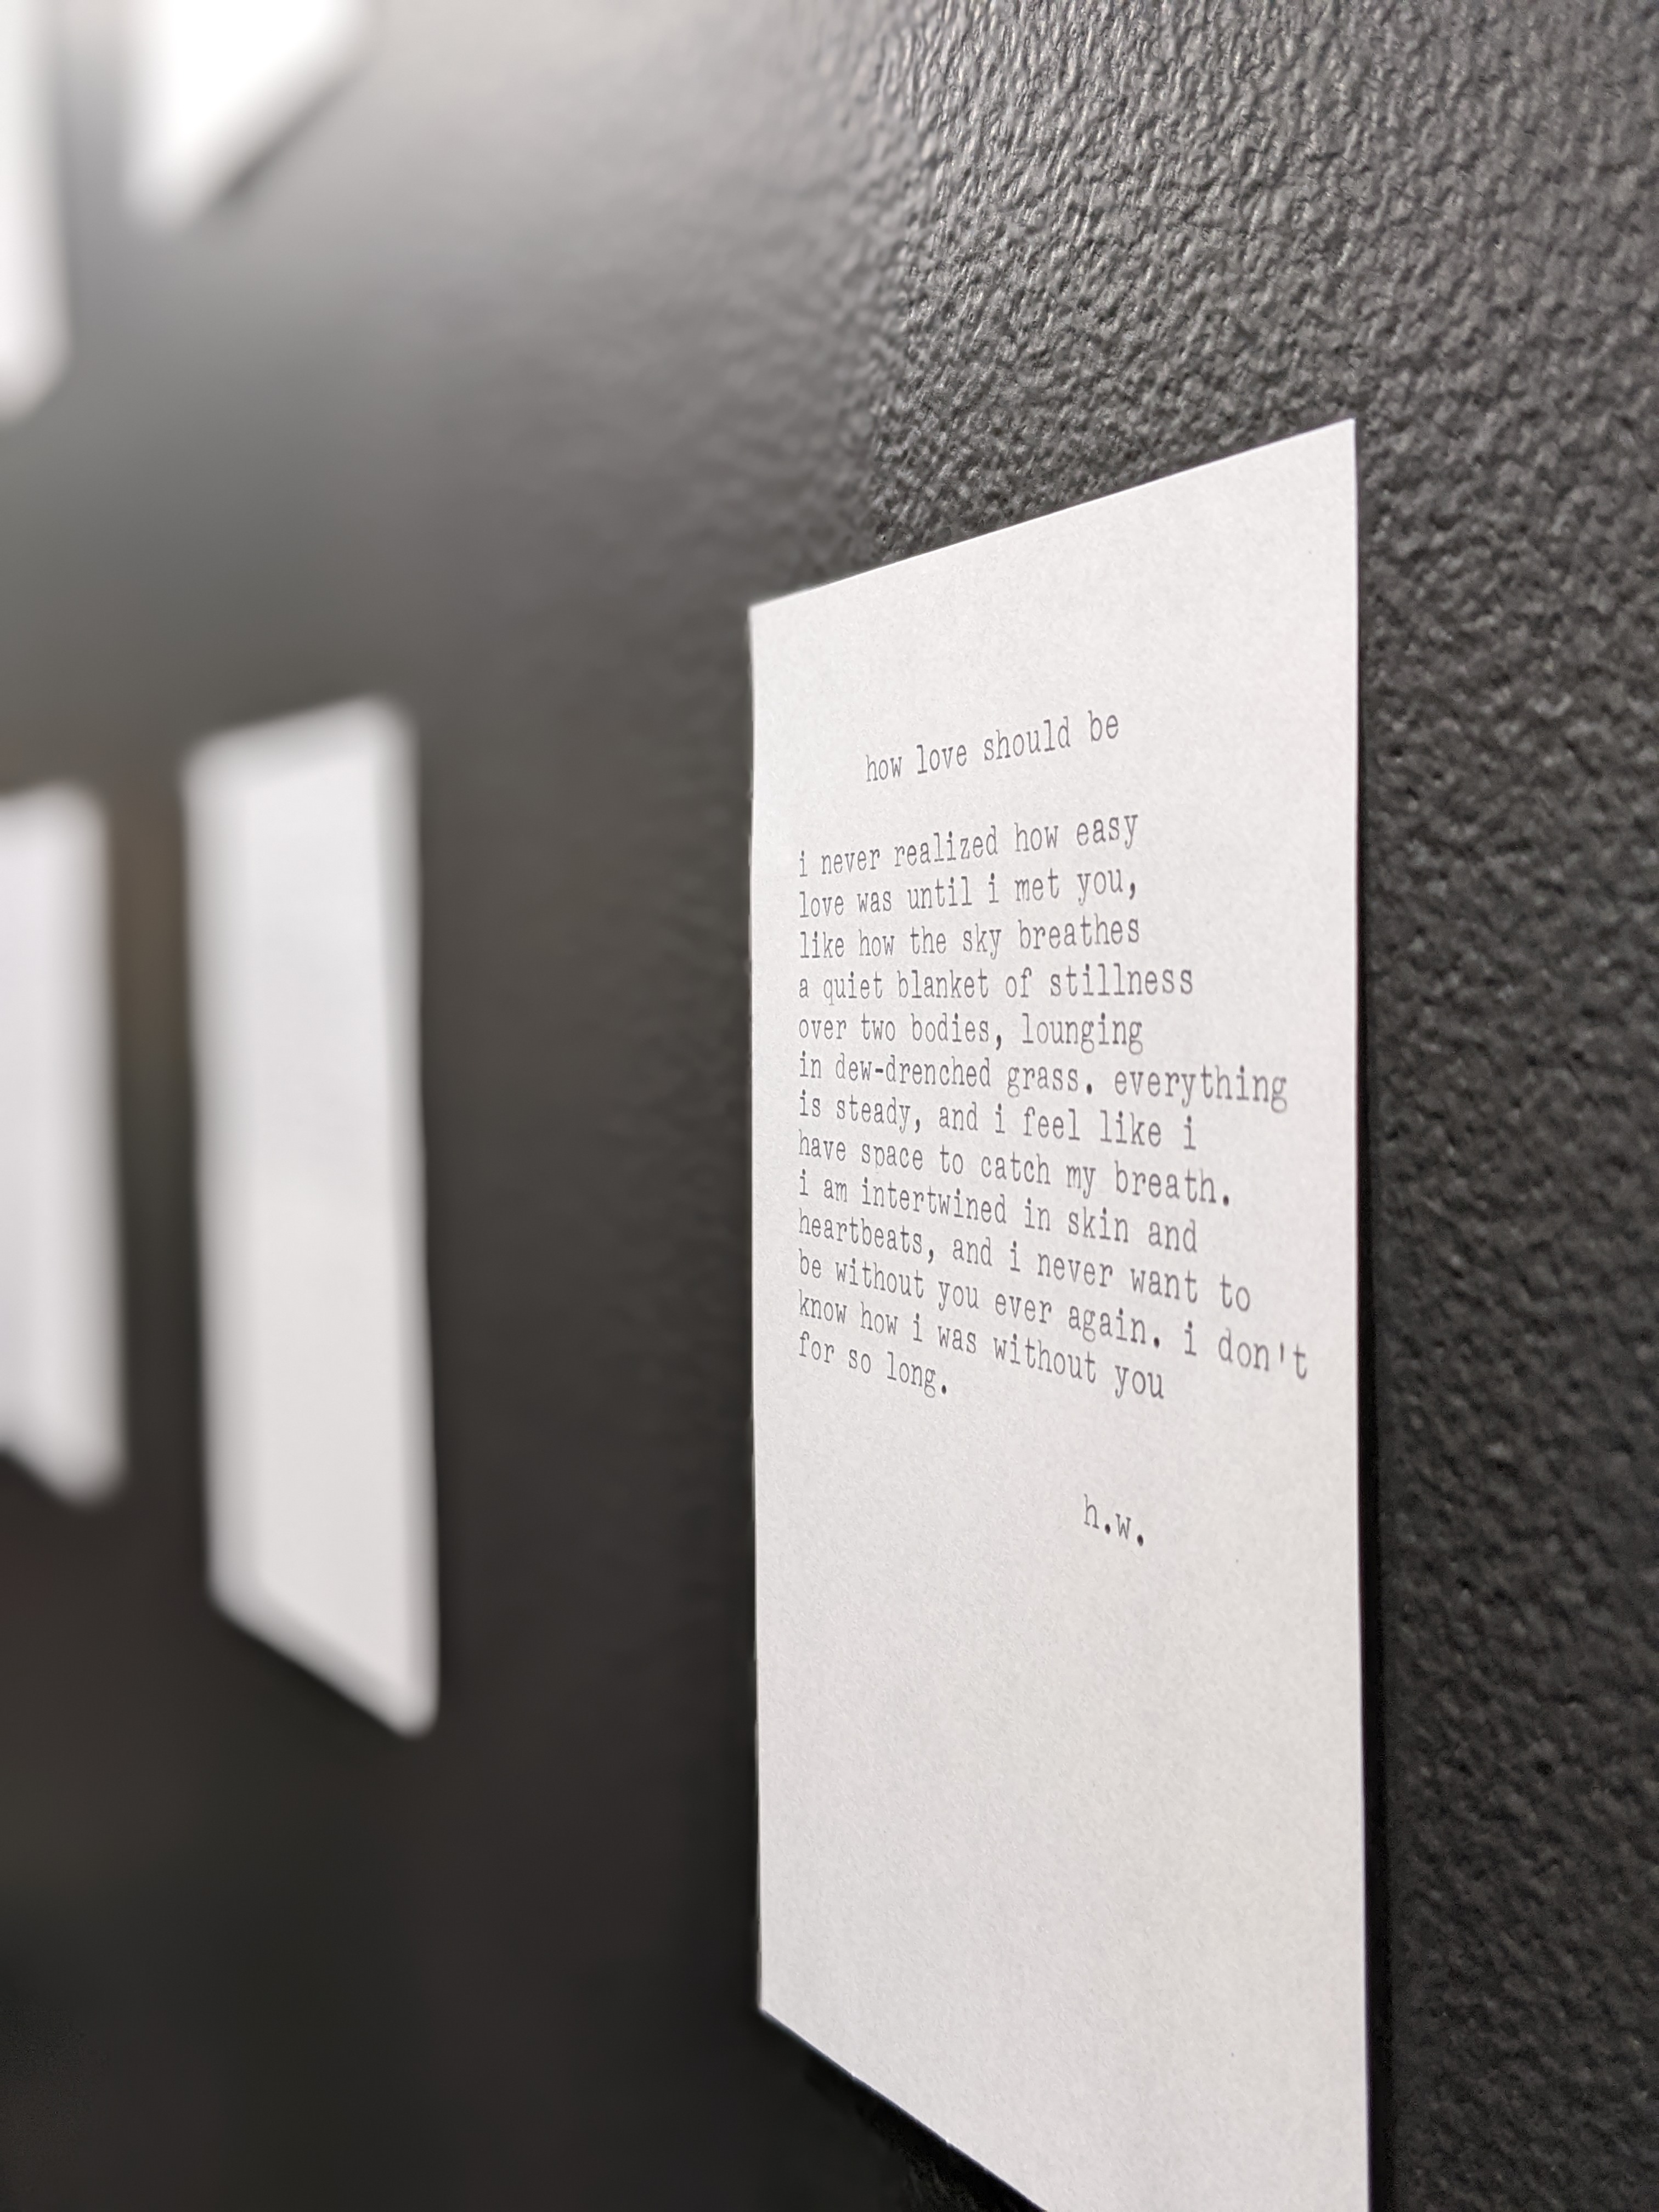 how love should be
i never realized how easy
love was until i met you,
like how the sky breathes
a quiet blanket of stillness
over two bodies, lounging
in dew-drenched grass. everything
is steady, and i feel like i
have space to catch my breath.
i am intertwined in skin and
heartbeats, and i never want to
be without you ever again. i don't
know how i was without you
for so long.
h.w.